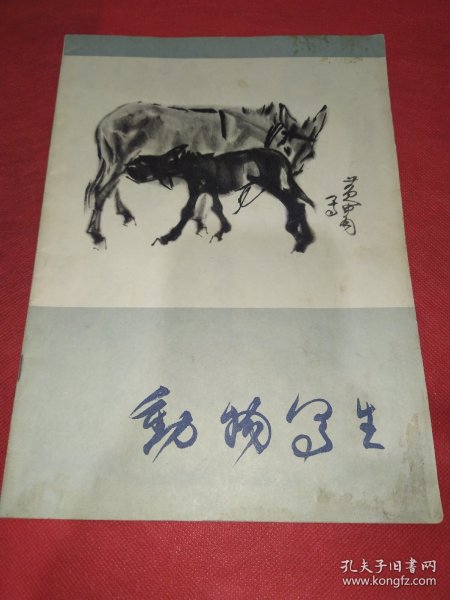 黄胄
写
動物写生
孔夫子旧书网
www.kongfz.com